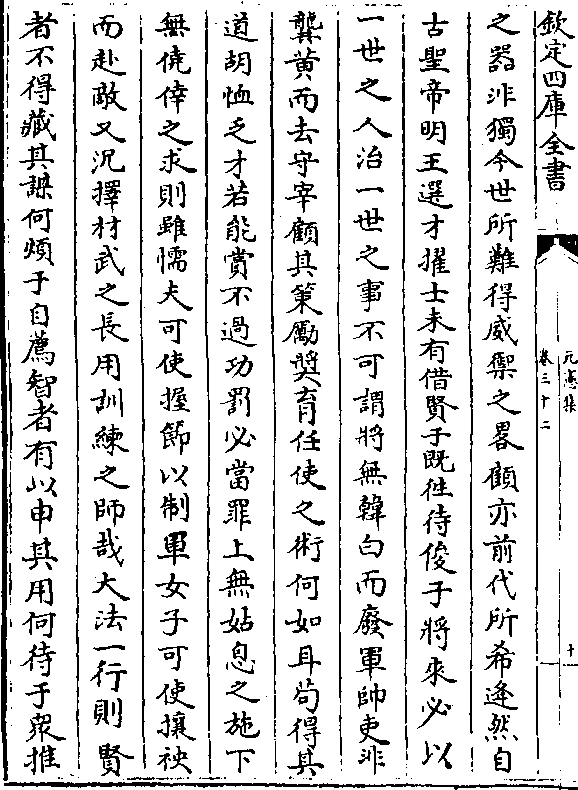 欽定四庫全書
元憲集
卷三十二
十
之器非獨今世所難得威禦之畧顧亦前代所希逢然自
古聖帝明王選才擢士未有借賢于既徃待俊于將來必以
一世之人治一世之事不可謂將無韓白而廢軍帥吏非
龔黄而去守宰顧其策勵奬育任使之術何如耳茍得其
道胡恤乏才若能賞不過功罰必當罪上無姑息之施下
無僥倖之求則雖懦夫可使握節以制軍女子可使攘袂
而赴敵又況擇材武之長用訓練之師哉大法一行則賢
者不得藏其謀何煩于自薦智者有以申其用何待于衆推